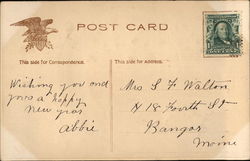 POST CARD
This side for Correspondence.
This side for Address.
Wishing you and
yours a happy
new year
Abbie
Mrs S F Walton
# 18 Fourth St
Bangor
Maine